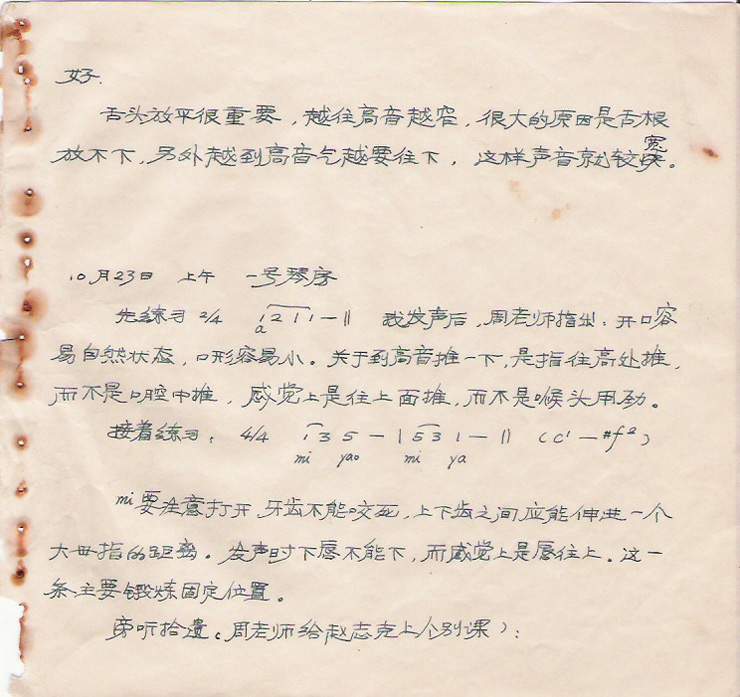 好.
舌头放平很重要，越往高音越窄，很大的原因是舌根
放不下，另外越到高音气越要往下，这样声音就较宽。
10月23日 上午 一号琴房
先练习 2/4 1 2 1 1 – ‖ 我发声后，周老师指出：开口容
a
易自然状态，口形容易小。关于到高音推一下，是指往高处推，
而不是口腔中推，感觉上是往上面推，而不是喉头用劲。
接着练习： 4/4 1 3 5 – | 5 3 1 – ‖ （c¹ – #f²）
mi yao mi ya
mi要注意打开，牙齿不能咬死，上下齿之间应能伸进一个
大毋指的距离。发声时下唇不能下，而感觉上是唇往上。这一
条主要锻炼固定位置。
旁听拾遗（周老师给赵志克上个别课）：